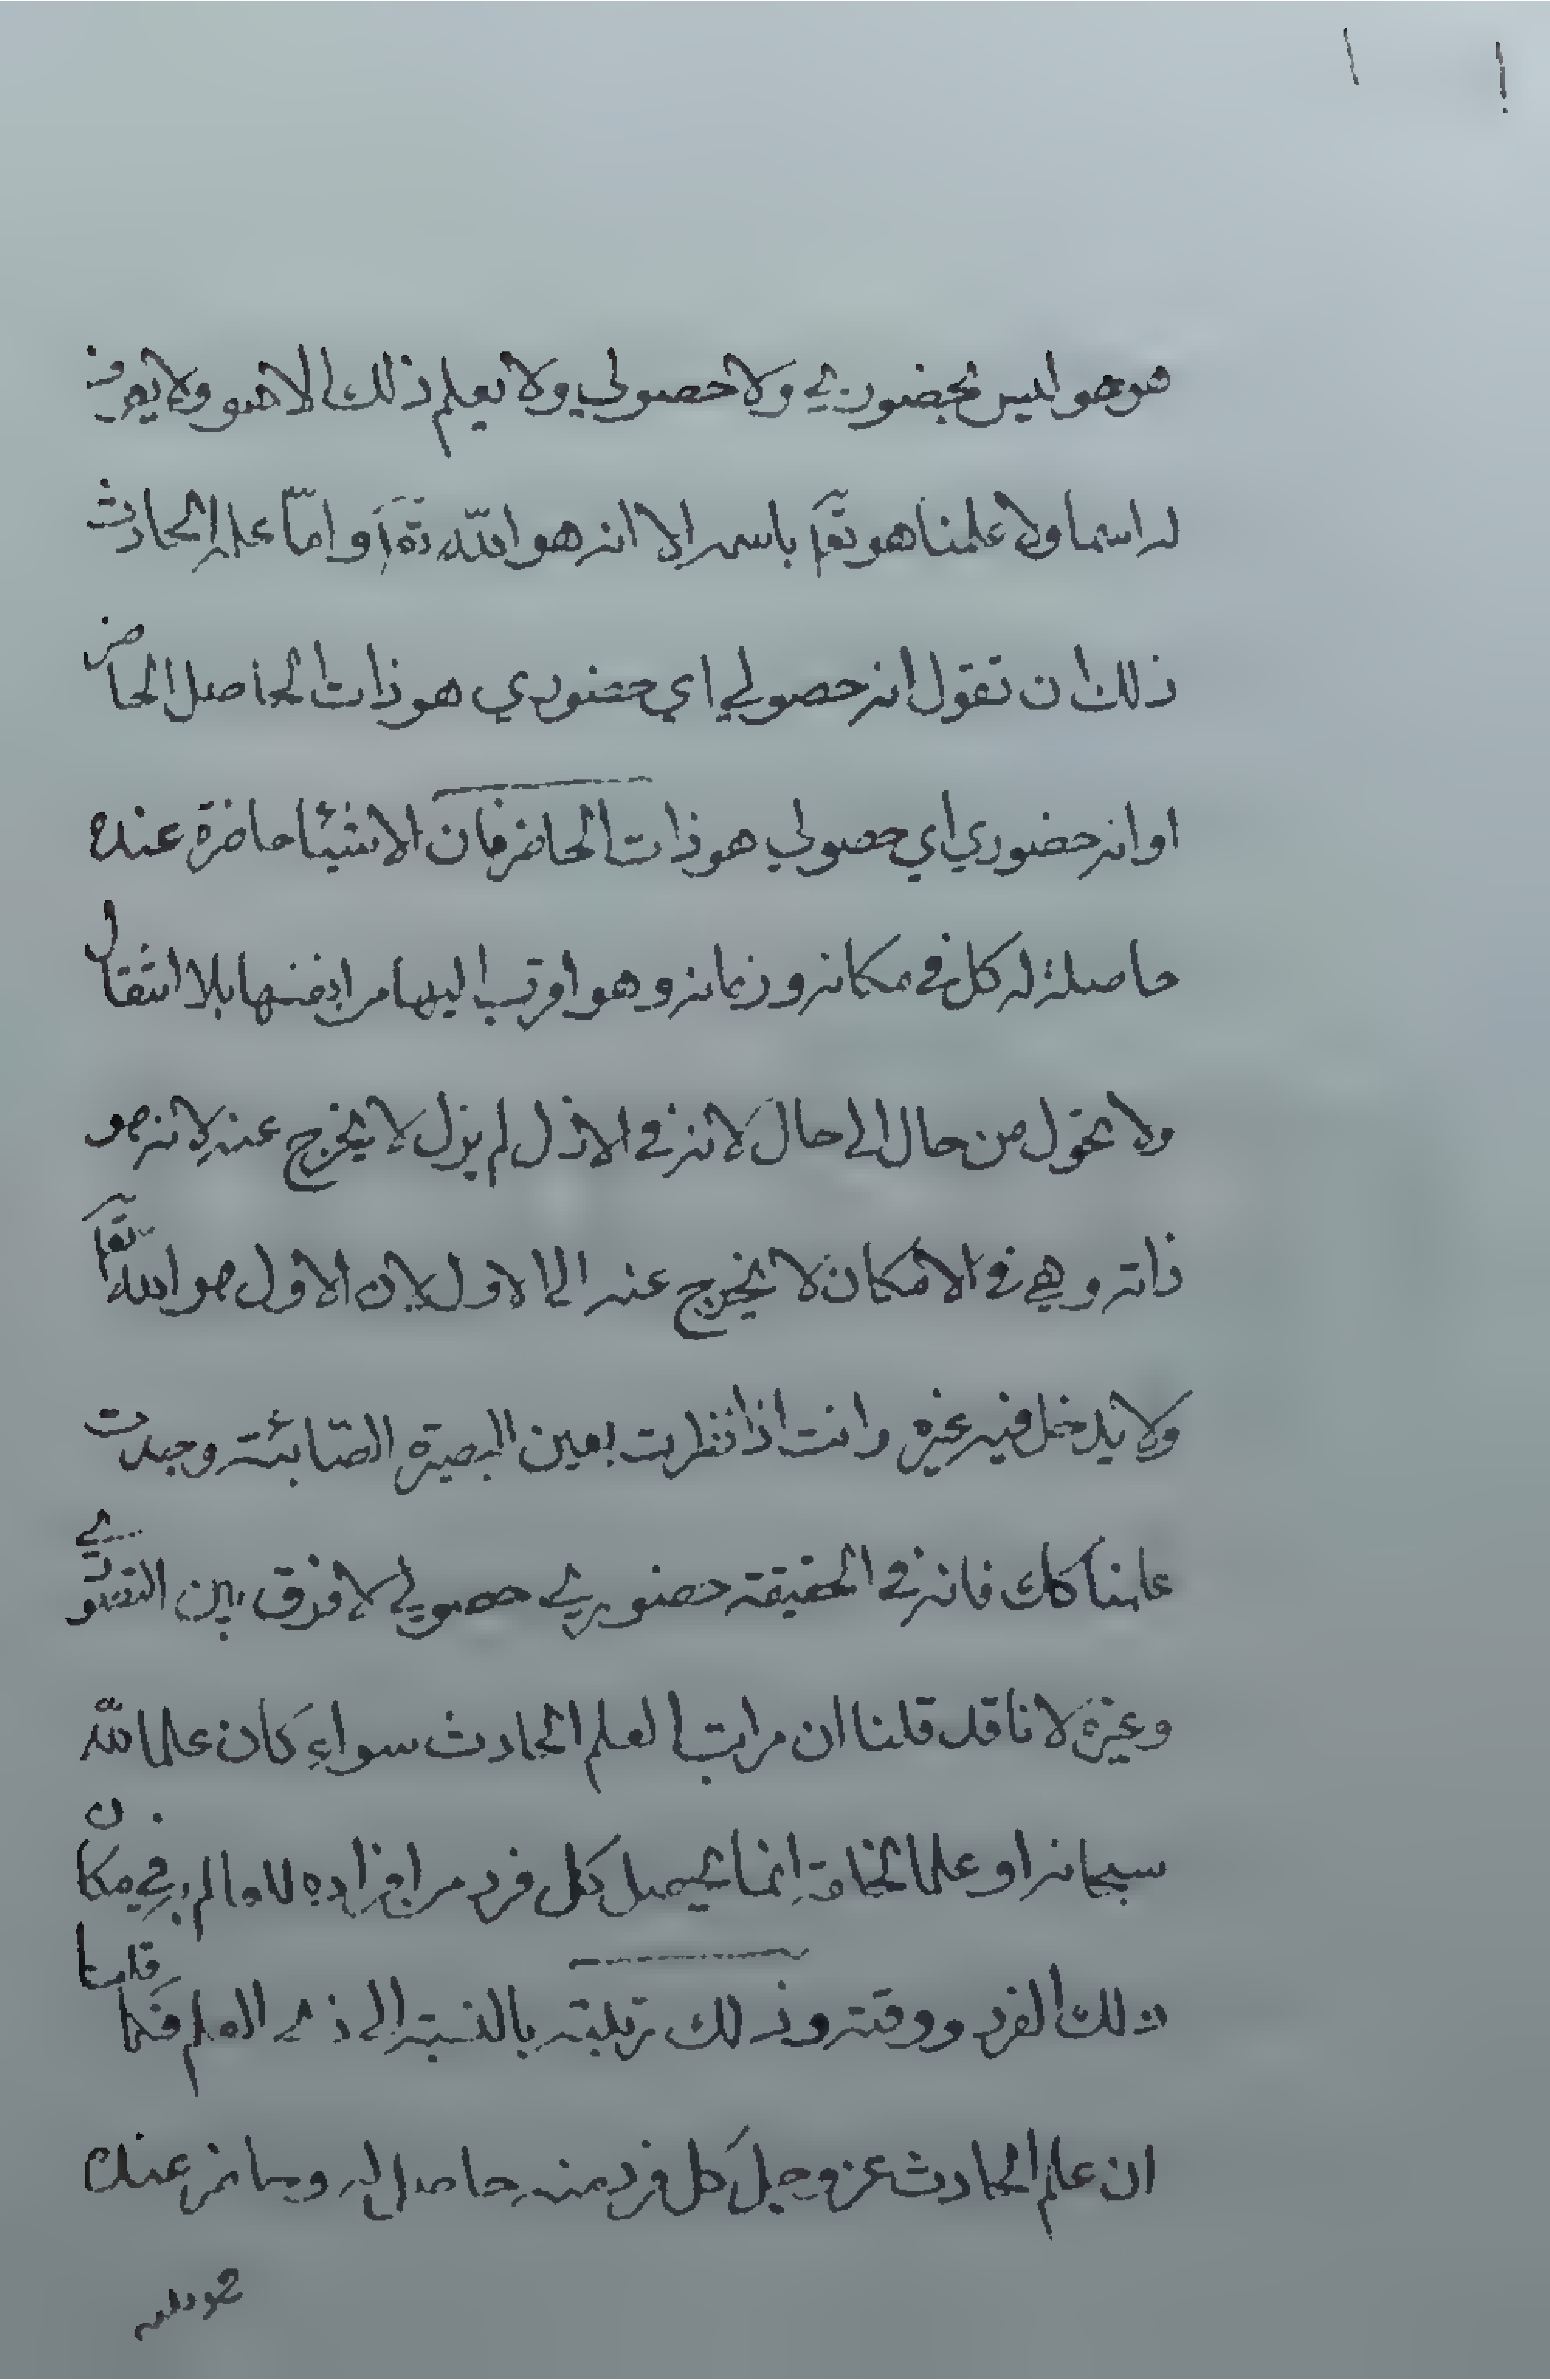 هو هو ليس بحضوري ولا حصولي ولا يعلم ذلك الا هو ولا يعرف
له اسما ولا علمنا هو تعا باسمه الا انه هو الله تعا واما علمه الحادث
ذلك ان تقول انه حصولي اي حضوري هو ذات الحاصل الحاضر
او انه حضوري اي حصولي هو ذات الحاضر فان الاشيئا حاضرة عنده
حاصلة له كل في مكانه وزمانه وهو اقرب اليها من انفسها بلا انتقال
ولا تحول من حال الى حال لانه في الازل لم يزل لا يخرج عنه لانه هو
ذاته وهي في الامكان لا يخرج عنه الى الاول لان الاول هو الله تعا
ولا يدخل فيه غيره وانت اذا نظرت بعين البصيرة الصائبة وجدت
علمنا كك فانه في الحقيقة حضوري حصولي لا فرق بين التصوري
وغيره لانا قد قلنا ان مراتب العلم الحادث سواء كان علما لله
سبحانه او علما لخلقه انما يحصل كل فرد من افراده للعالم به في مكان
ذلك الفرد ووقته وذلك رتبته بالنسبة الى ذي العلم فكما قلنا
ان علم الحادث عز وجل كل فرد منه حاصل له وحاضر عنده